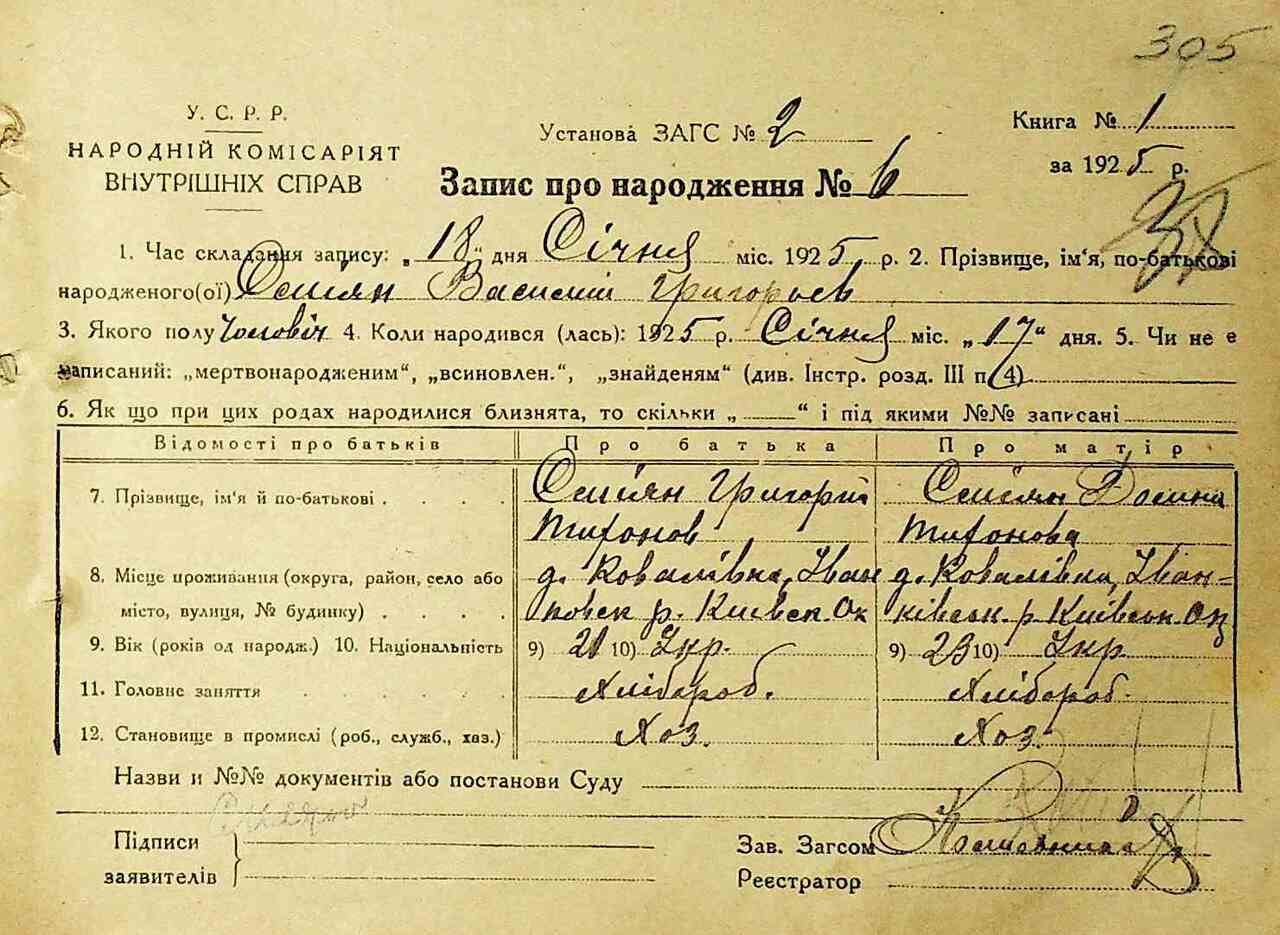 305
У. С. Р. Р.
НАРОДНІЙ КОМІСАРІЯТ
ВНУТРІШНІХ СПРАВ
Установа ЗАГС № 2
Книга № 1
за 1925 р.
Запис про народження № 6
1. Час складання запису: „18“ дня Січня міс. 1925 р. 2. Прізвище, ім'я, по-батькові
народженого(ої) Василій Григорьев
3. Якого полу Чоловіч 4. Коли народився (лась): 1925 р. Січня міс. „17“ дня. 5. Чи не є
записаний: „мертвонародженим“, „всиновлен.“, „знайденям“ (див. Інстр. розд. III п. 4)
6. Як що при цих родах народилися близнята, то скільки „ “ і під якими №№ записані
Відомості про батьків Про батька Про матір
7. Прізвище, ім'я й по-батькові Григорій
Тихонов Тихонова
8. Місце проживання (округа, район, село або д. Ковалівка, Іван д. Ковалівка, Іван-
місто, вулиця, № будинку) ковск р. Киевск Ок ківськ. р. Київськ. Ок
9. Вік (років од народж.) 10. Національність 9) 21 10) Укр. 9) 23 10) Укр.
11. Головне заняття Хлібороб. Хлібороб.
12. Становище в промислі (роб., служб., хаз.) Хоз. Хоз.
Назви и №№ документів або постанови Суду
Підписи
заявителів
Зав. Загсом
Реєстратор